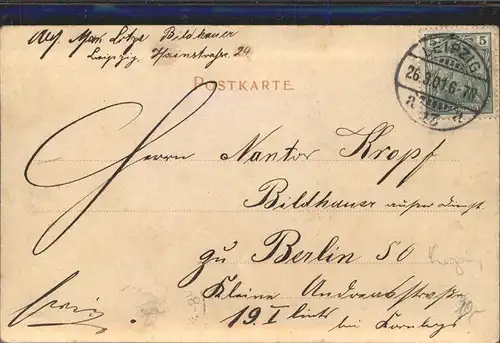 Abs. Max Lötze Bildhauer
Leipzig. Hainstraße 24
POSTKARTE.
5
LEIPZIG
26.3.01.6-7N.
Herrn Nantor Kropf
Bildhauer außer Dienst
zu Berlin SO
Kleine Andreasstraße
19. I links
bei Kornberg